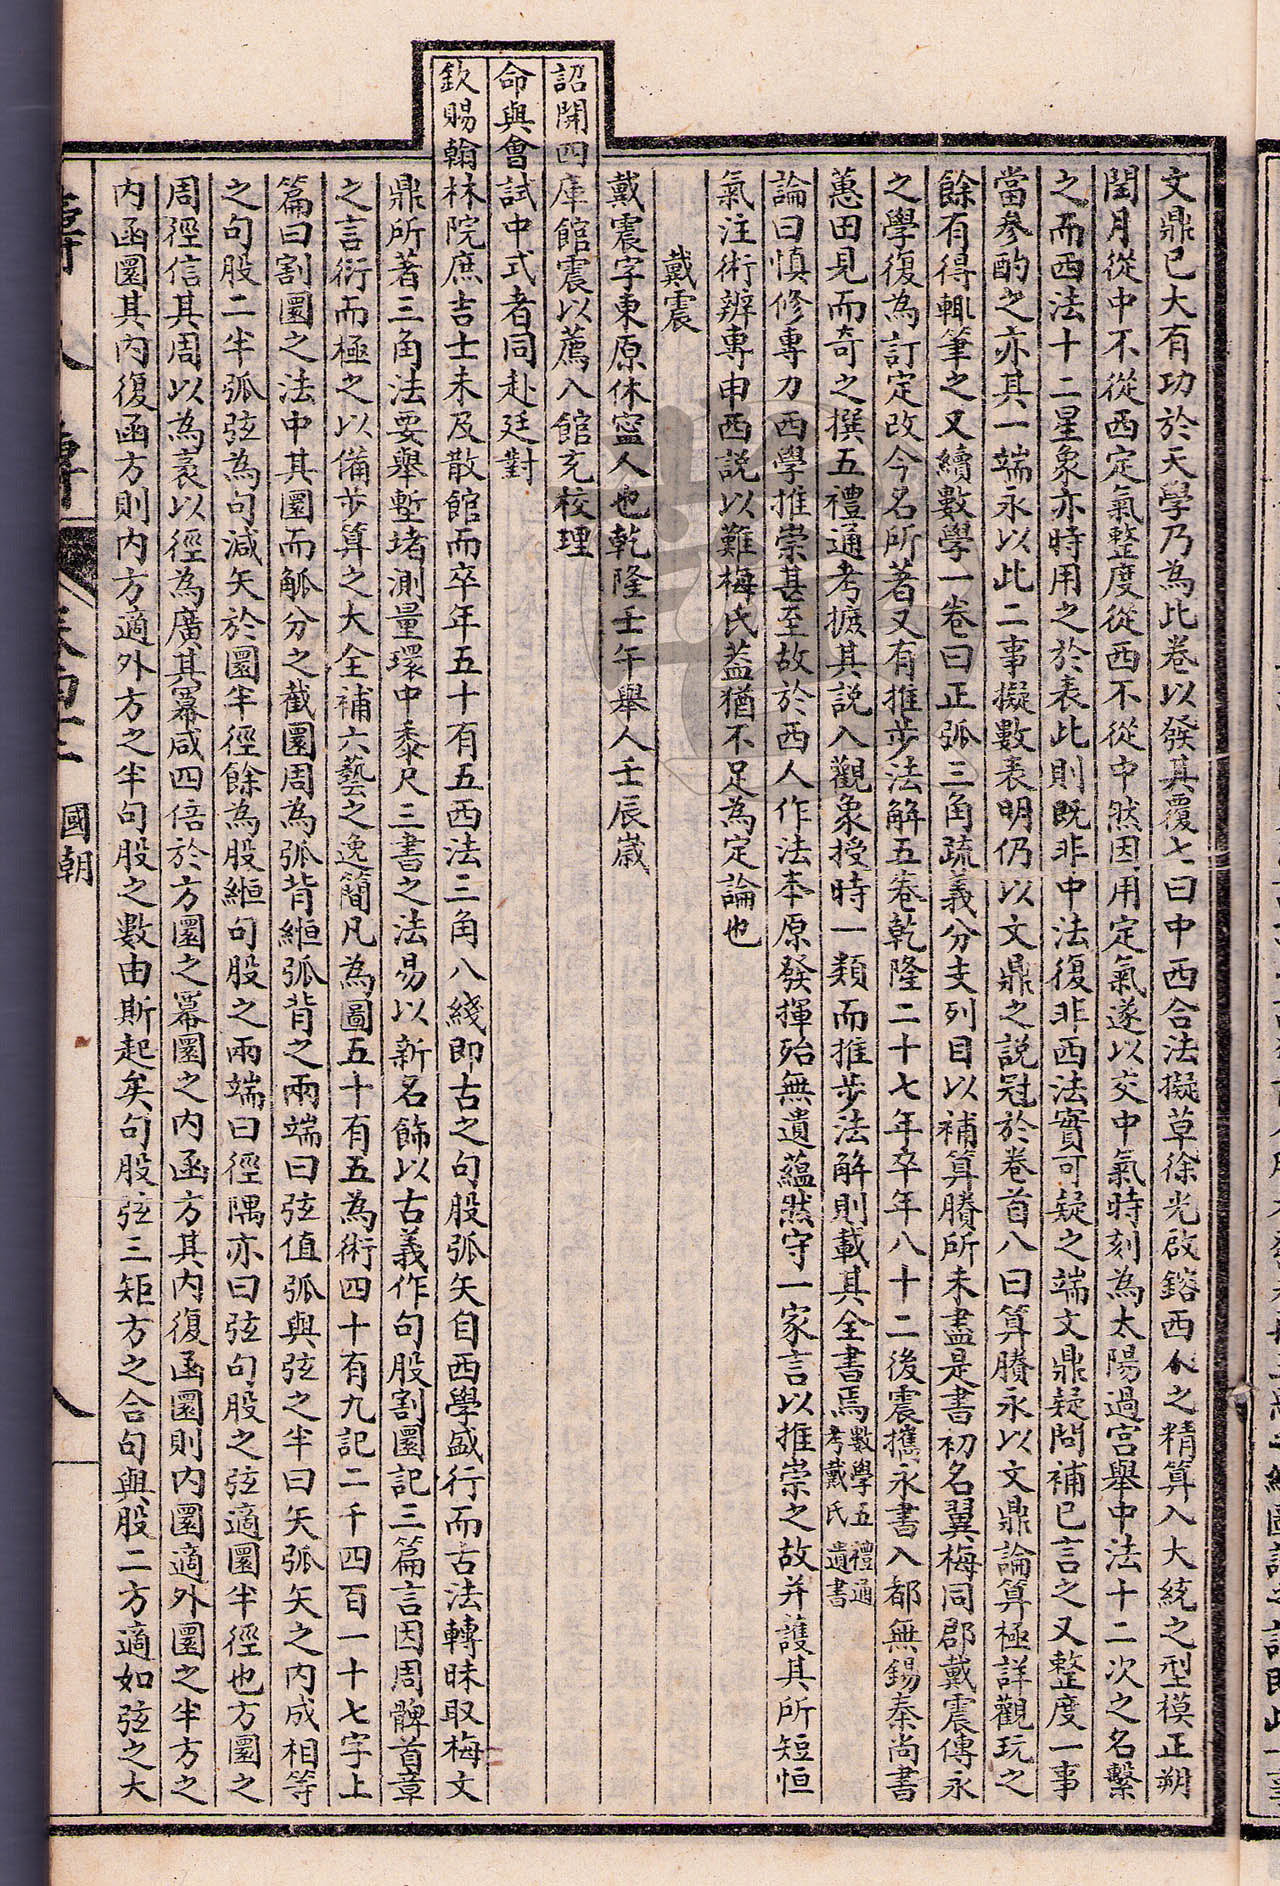 文鼎已大有功於天學乃為此卷以發其覆七曰中西合法擬草徐光啟鎔西人之精算入大統之型模正朔
閏月從中不從西定氣整度從西不從中然因用定氣遂以交中氣時刻為太陽過宮舉中法十二次之名繫
之而西法十二星象亦時用之於表此則既非中法復非西法實可疑之端文鼎疑問補已言之又整度一事
當參酌之亦其一端永以此二事擬數表明仍以文鼎之說冠於卷首八曰算賸永以文鼎論算極詳觀玩之
餘有得輒筆之又續數學一卷曰正弧三角疏義分支列目以補算賸所未盡是書初名翼梅同郡戴震傳永
之學復為訂定改今名所著又有推步法解五卷乾隆二十七年卒年八十二後震攜永書入都無錫秦尚書
蕙田見而奇之撰五禮通考摭其說入觀象授時一類而推步法解則載其全書焉數學五禮通考戴氏遺書
論曰慎修專力西學推崇甚至故於西人作法本原發揮殆無遺蘊然守一家言以推崇之故并護其所短恒
氣注術辨專申西說以難梅氏蓋猶不足為定論也
戴震
戴震字東原休寧人也乾隆壬午舉人壬辰歲
詔開四庫館震以薦入館充校理
命與會試中式者同赴廷對
欽賜翰林院庶吉士未及散館而卒年五十有五西法三角八綫即古之句股弧矢自西學盛行而古法轉昧取梅文
鼎所著三角法要舉塹堵測量環中黍尺三書之法易以新名飾以古義作句股割圜記三篇言因周髀首章
之言衍而極之以備步算之大全補六藝之逸簡凡為圖五十有五為術四十有九記二千四百一十七字上
篇曰割圜之法中其圜而觚分之截圜周為弧背緪弧背之兩端曰弦值弧與弦之半曰矢弧矢之內成相等
之句股二半弧弦為句減矢於圜半徑餘為股緪句股之兩端曰徑隅亦曰弦句股之弦適圜半徑也方圜之
周徑信其周以為袤以徑為廣其冪咸四倍於方圜之冪圜之內函方其內復函圜則內圜適外圜之半方之
內函圜其內復函方則內方適外方之半句股之數由斯起矣句股弦三矩方之合句與股二方適如弦之大
國朝
八